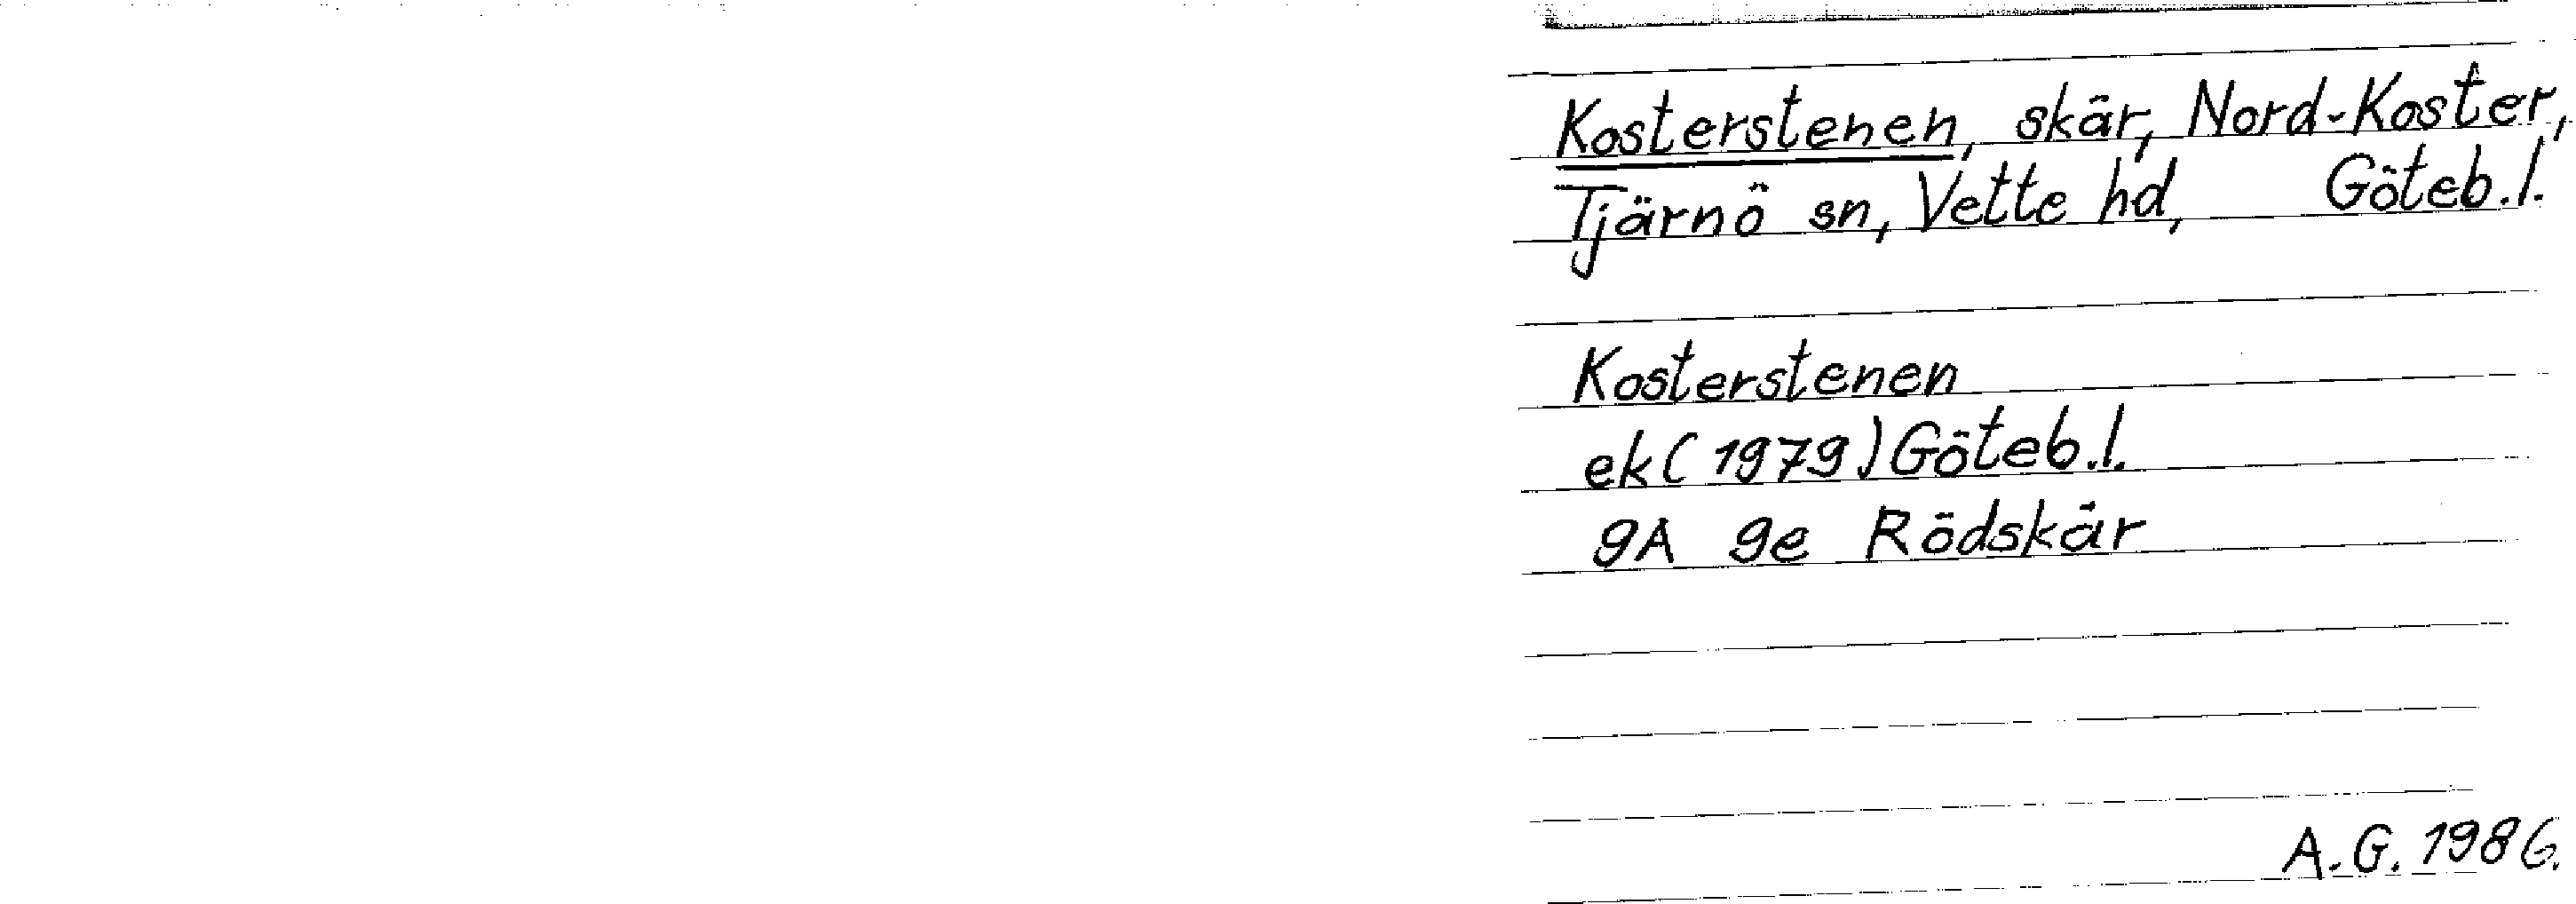 Kosterstenen, skär, Nord-Koster,
Tjärnö sn, Vette hd, Göteb.l.
Kosterstenen
ek (1979) Göteb.l.
9A 9e Rödskär
A.G. 1986.